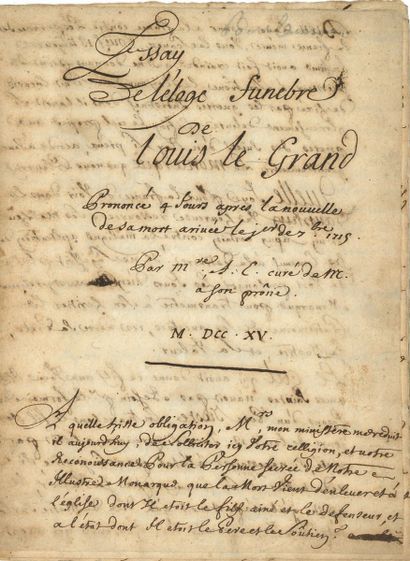 Essay
De l'eloge funebre
De
Louis le Grand
Prononcé 4 Jours apres la nouvelle
de sa mort arivée le 1er de 7bre 1715
Par mre A. C. curé de M.
a son prône.
M. DCC. XV.
A quelle triste obligation, Mrs, mon ministere me reduit
il aujourdhuy, de solliciter icy Votre relligion, et votre
Reconoissance Pour la Personne sacrée de Notre
Illustre Monarque que la Mort Vient d'enlever et à
l'église dont Il etoit le fils ainé et le defenseur, et
a l'état dont Il etoit le Pere et le Soutien